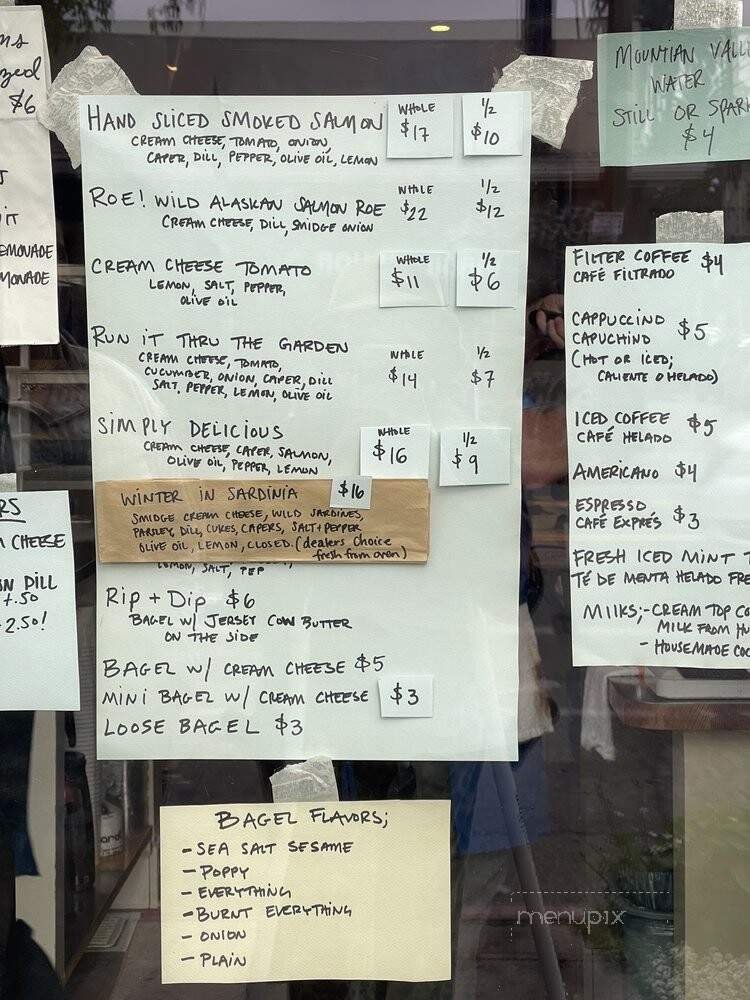 $6
HAND SLICED SMOKED SALMON WHOLE $17 1/2 $10
CREAM CHEESE, TOMATO, ONION,
CAPER, DILL, PEPPER, OLIVE OIL, LEMON
ROE! WILD ALASKAN SALMON ROE WHOLE $22 1/2 $12
CREAM CHEESE, DILL, SMIDGE ONION
CREAM CHEESE TOMATO WHOLE $11 1/2 $6
LEMON, SALT, PEPPER,
OLIVE OIL
RUN IT THRU THE GARDEN WHOLE $14 1/2 $7
CREAM CHEESE, TOMATO,
CUCUMBER, ONION, CAPER, DILL
SALT, PEPPER, LEMON, OLIVE OIL
SIMPLY DELICIOUS WHOLE $16 1/2 $9
CREAM CHEESE, CAPER, SALMON,
OLIVE OIL, PEPPER, LEMON
WINTER IN SARDINIA $16
SMIDGE CREAM CHEESE, WILD SARDINES,
PARSLEY, DILL, CUKES, CAPERS, SALT + PEPPER
OLIVE OIL, LEMON, CLOSED. (dealers choice
fresh from oven)
LEMON, SALT, PEP
Rip + Dip $6
BAGEL W/ JERSEY COW BUTTER
ON THE SIDE
BAGEL W/ CREAM CHEESE $5
MINI BAGEL W/ CREAM CHEESE $3
LOOSE BAGEL $3
BAGEL FLAVORS;
- SEA SALT SESAME
- POPPY
- EVERYTHING
- BURNT EVERYTHING
- ONION
- PLAIN
CHEESE
DILL
2.50!
MOUNTIAN VALL
WATER
STILL OR SPARK
$4
FILTER COFFEE $4
CAFÉ FILTRADO
CAPPUCCINO $5
CAPUCHINO
(HOT OR ICED;
CALIENTE O HELADO)
ICED COFFEE $5
CAFÉ HELADO
AMERICANO $4
ESPRESSO $3
CAFÉ EXPRÉS
FRESH ICED MINT T
TÉ DE MENTA HELADO FRE
MILKS;- CREAM TOP CO
MILK FROM HU
- HOUSEMADE COC
menupix